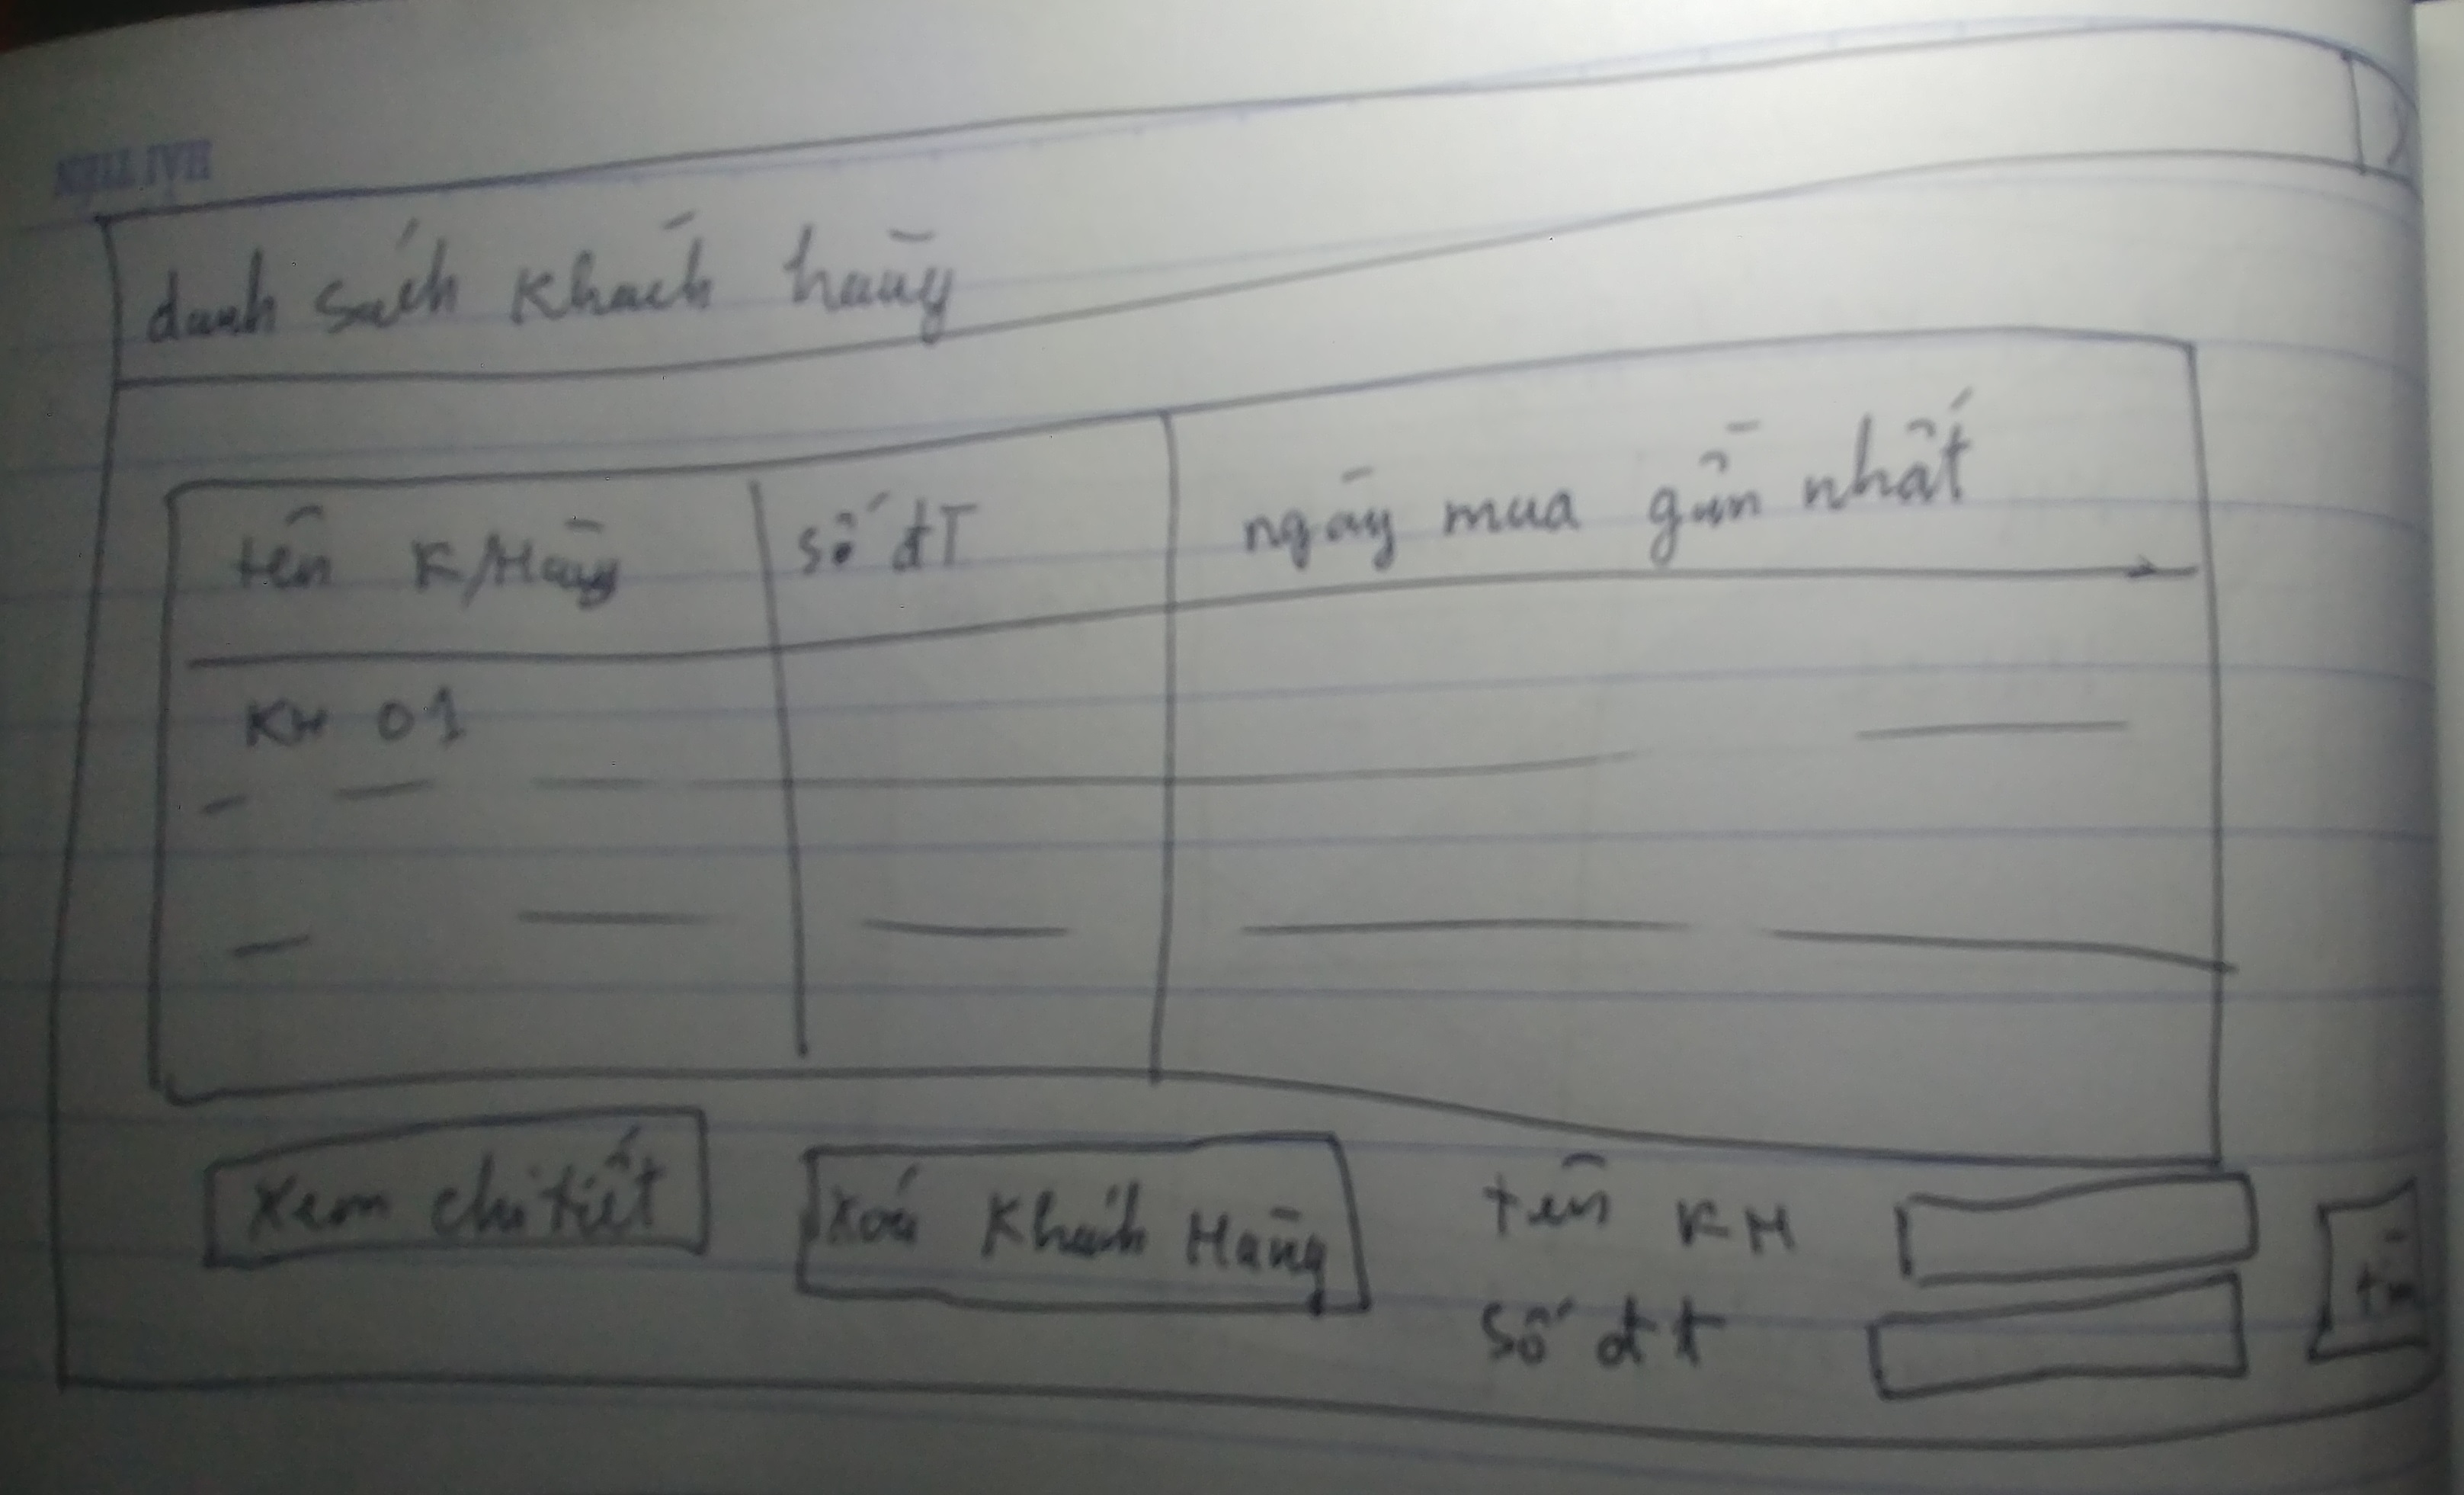 HẢI TIẾN
danh sách khách hàng
tên K/Hàng số đT ngày mua gần nhất
KH 01
Xem chi tiết Xoá Khách Hàng tên KH
số đt tìm